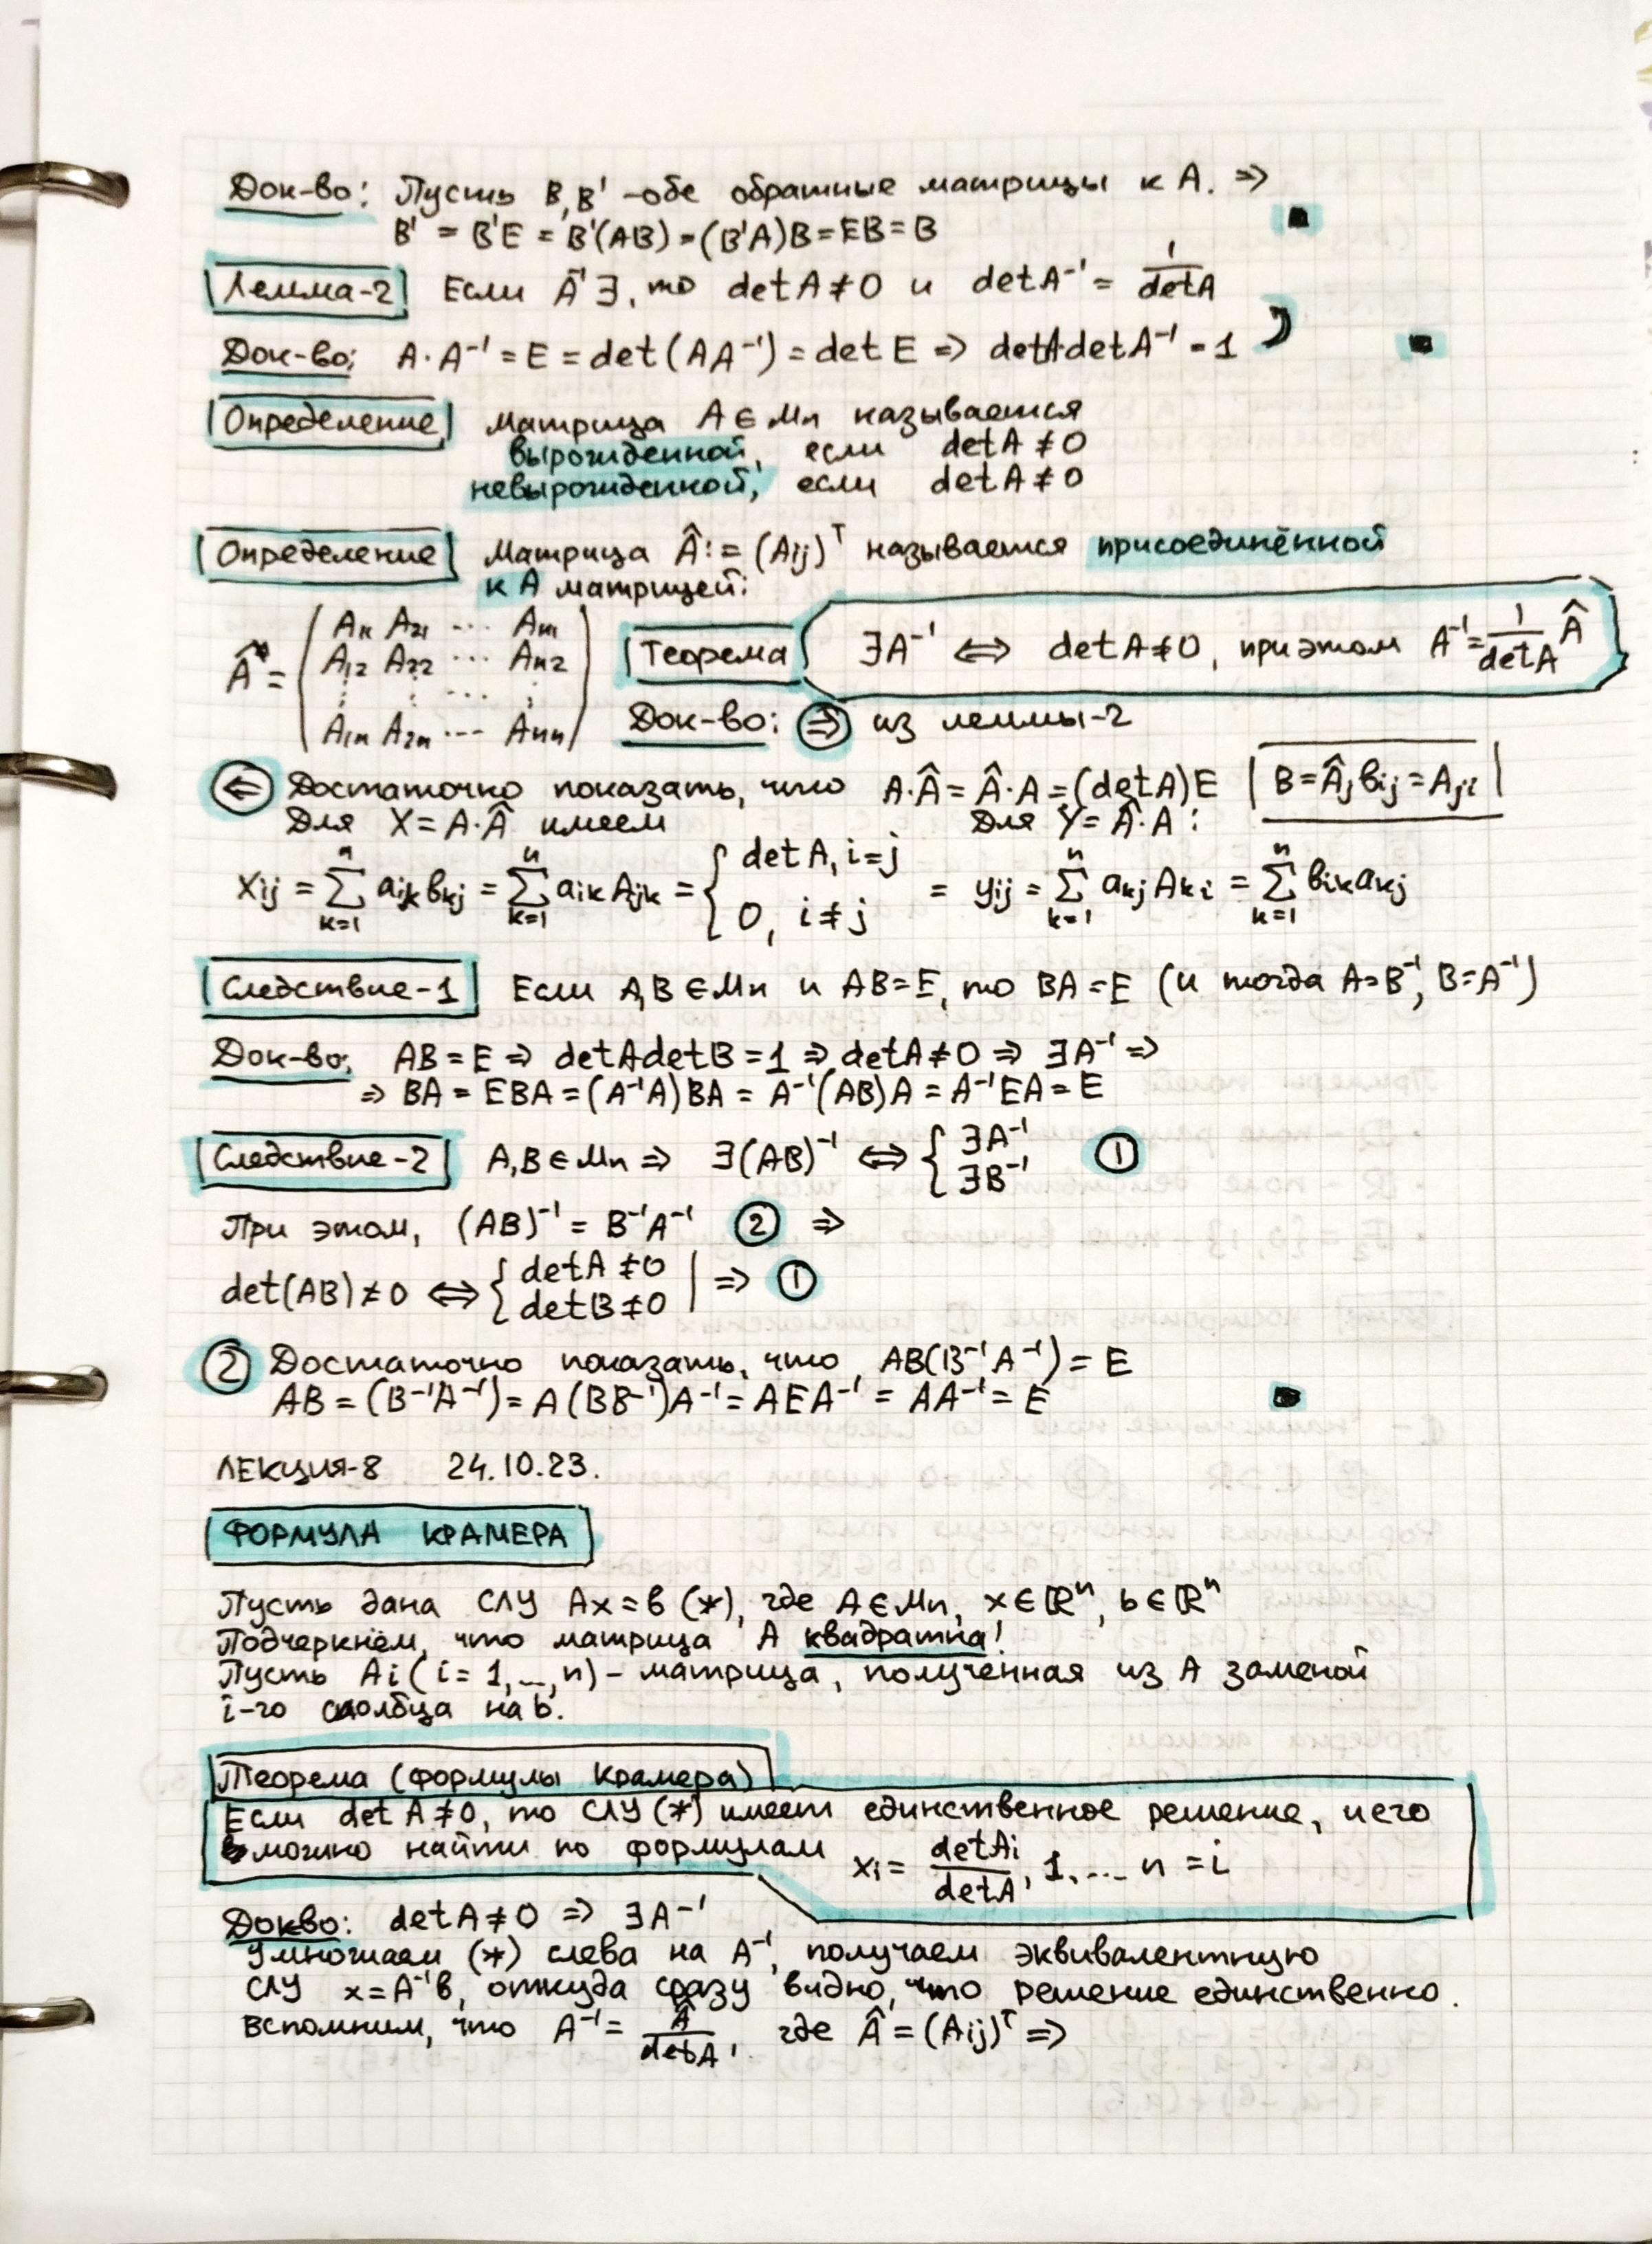 Док-во: Пусть B, B' - обе обратные матрицы к A. ⇒
B' = B'E = B'(AB) = (B'A)B = EB = B ■
Лемма-2 Если A⁻¹ ∃, то detA ≠ 0 и detA⁻¹ = 1/detA
Док-во: A·A⁻¹ = E = det(AA⁻¹) = det E ⇒ detA·detA⁻¹ = 1 ■
Определение Матрица A ∈ Mn называется
вырожденной, если detA ≠ 0
невырожденной, если detA ≠ 0
Определение Матрица Â := (Aij)ᵀ называется присоединённой
к A матрицей:
Â = ( A11 A21 ... An1
A12 A22 ... An2
⋮ ⋮ ... ⋮
A1n A2n ... Ann )
Теорема ∃A⁻¹ ⇔ detA ≠ 0, при этом A⁻¹ = 1/detA Â
Док-во: ⇒ из леммы-2
⇐ Достаточно показать, что A·Â = Â·A = (detA)E | B = Â, bij = Aji |
Для X = A·Â имеем Для Y = Â·A:
Xij = ∑ₖ₌₁ⁿ aik bkj = ∑ₖ₌₁ⁿ aik Ajk = { detA, i=j ; 0, i≠j = yij = ∑ₖ₌₁ⁿ akj Aki = ∑ₖ₌₁ⁿ bik akj
Следствие-1 Если A, B ∈ Mn и AB = E, то BA = E (и тогда A = B⁻¹, B = A⁻¹)
Док-во: AB = E ⇒ detAdetB = 1 ⇒ detA ≠ 0 ⇒ ∃A⁻¹ ⇒
⇒ BA = EBA = (A⁻¹A)BA = A⁻¹(AB)A = A⁻¹EA = E
Следствие-2 A, B ∈ Mn ⇒ ∃(AB)⁻¹ ⇔ { ∃A⁻¹ ; ∃B⁻¹ ①
При этом, (AB)⁻¹ = B⁻¹A⁻¹ ② ⇒
det(AB) ≠ 0 ⇔ { detA ≠ 0 ; detB ≠ 0 | ⇒ ①
② Достаточно показать, что AB(B⁻¹A⁻¹) = E
AB = (B⁻¹A⁻¹) = A(BB⁻¹)A⁻¹ = AEA⁻¹ = AA⁻¹ = E ■
ЛЕКЦИЯ-8 24.10.23.
ФОРМУЛА КРАМЕРА
Пусть дана СЛУ Ax = b (*), где A ∈ Mn, x ∈ ℝⁿ, b ∈ ℝⁿ
Подчеркнём, что матрица A квадратна!
Пусть Ai (i = 1, ..., n) - матрица, полученная из A заменой
i-го столбца на b.
Теорема (формулы Крамера)
Если det A ≠ 0, то СЛУ (*) имеет единственное решение, и его
можно найти по формулам xi = detAi/detA, 1, ... n = i
Докво: detA ≠ 0 ⇒ ∃A⁻¹
Умножаем (*) слева на A⁻¹, получаем эквивалентную
СЛУ x = A⁻¹b, откуда сразу видно, что решение единственно.
Вспомним, что A⁻¹ = Â/detA, где Â = (Aij)ᵀ ⇒